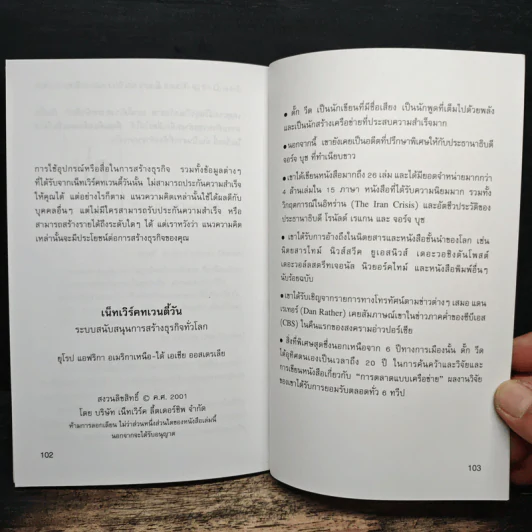 การใช้อุปกรณ์หรือสื่อในการสร้างธุรกิจ รวมทั้งข้อมูลต่างๆ
ที่ได้รับจากเน็ทเวิร์คทเวนตี้วันนั้น ไม่สามารถประกันความสำเร็จ
ให้คุณได้ แต่อย่างไรก็ตาม แนวความคิดเหล่านั้นใช้ได้ผลดีกับ
บุคคลอื่นๆ แต่ไม่มีใครสามารถรับประกันความสำเร็จ หรือ
สามารถสร้างรายได้ถึงระดับใดๆ ได้ แต่เราหวังว่า แนวความคิด
เหล่านั้นจะมีประโยชน์ต่อการสร้างธุรกิจของคุณ
เน็ทเวิร์คทเวนตี้วัน
ระบบสนับสนุนการสร้างธุรกิจทั่วโลก
ยุโรป แอฟริกา อเมริกาเหนือ-ใต้ เอเชีย ออสเตรเลีย
สงวนลิขสิทธิ์ © ค.ศ. 2001
โดย บริษัท เน็ทเวิร์ค ลีดเดอร์ชิพ จำกัด
ห้ามการลอกเลียน ไม่ว่าส่วนหนึ่งส่วนใดของหนังสือเล่มนี้
นอกจากจะได้รับอนุญาต
102
• ดั๊ก วีด เป็นนักเขียนที่มีชื่อเสียง เป็นนักพูดที่เต็มไปด้วยพลัง
และเป็นนักสร้างเครือข่ายที่ประสบความสำเร็จมาก
• นอกจากนี้ เขายังเคยเป็นอดีตที่ปรึกษาพิเศษให้กับประธานาธิบดี
จอร์จ บุช ที่ทำเนียบขาว
• เขาได้เขียนหนังสือมากถึง 26 เล่ม และได้มียอดจำหน่ายมากกว่า
4 ล้านเล่มใน 15 ภาษา หนังสือที่ได้รับความนิยมมาก รวมทั้ง
วิกฤตการณ์ในอิหร่าน (The Iran Crisis) และอัตชีวประวัติของ
ประธานาธิบดี โรนัลด์ เรแกน และ จอร์จ บุช
• เขาได้รับการอ้างถึงในนิตยสารและหนังสือชั้นนำของโลก เช่น
นิตยสารไทม์ นิวส์สวีค ยูเอสนิวส์ เดอะวอชิงตันโพสต์
เดอะวอล์ลสตรีทเจอนัล นิวยอร์คไทม์ และหนังสือพิมพ์อื่นๆ
นับร้อยฉบับ
• เขาได้รับเชิญจากรายการทางโทรทัศน์ตามข่าวต่างๆ เสมอ แดน
เรเทอร์ (Dan Rather) เคยสัมภาษณ์เขาในข่าวภาคค่ำของซีบีเอส
(CBS) ในคืนแรกของสงครามอ่าวเปอร์เซีย
• สิ่งที่พิเศษสุดซึ่งนอกเหนือจาก 6 ปีทางการเมืองนั้น ดั๊ก วีด
ได้อุทิศตนเองเป็นเวลาถึง 20 ปี ในการค้นคว้าและวิจัยและ
การเขียนหนังสือเกี่ยวกับ "การตลาดแบบเครือข่าย" ผลงานวิจัย
ของเขาได้รับการยอมรับตลอดทั่ว 6 ทวีป
103